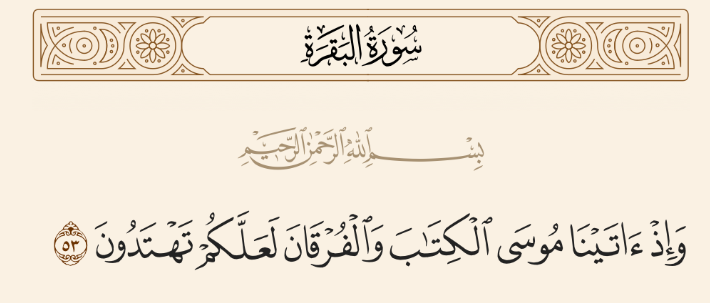 سُورَةُ البَقَرَةِ
بِسْمِ ٱللَّهِ ٱلرَّحْمَٰنِ ٱلرَّحِيمِ
وَإِذْ ءَاتَيْنَا مُوسَى ٱلْكِتَٰبَ وَٱلْفُرْقَانَ لَعَلَّكُمْ تَهْتَدُونَ ٥٣